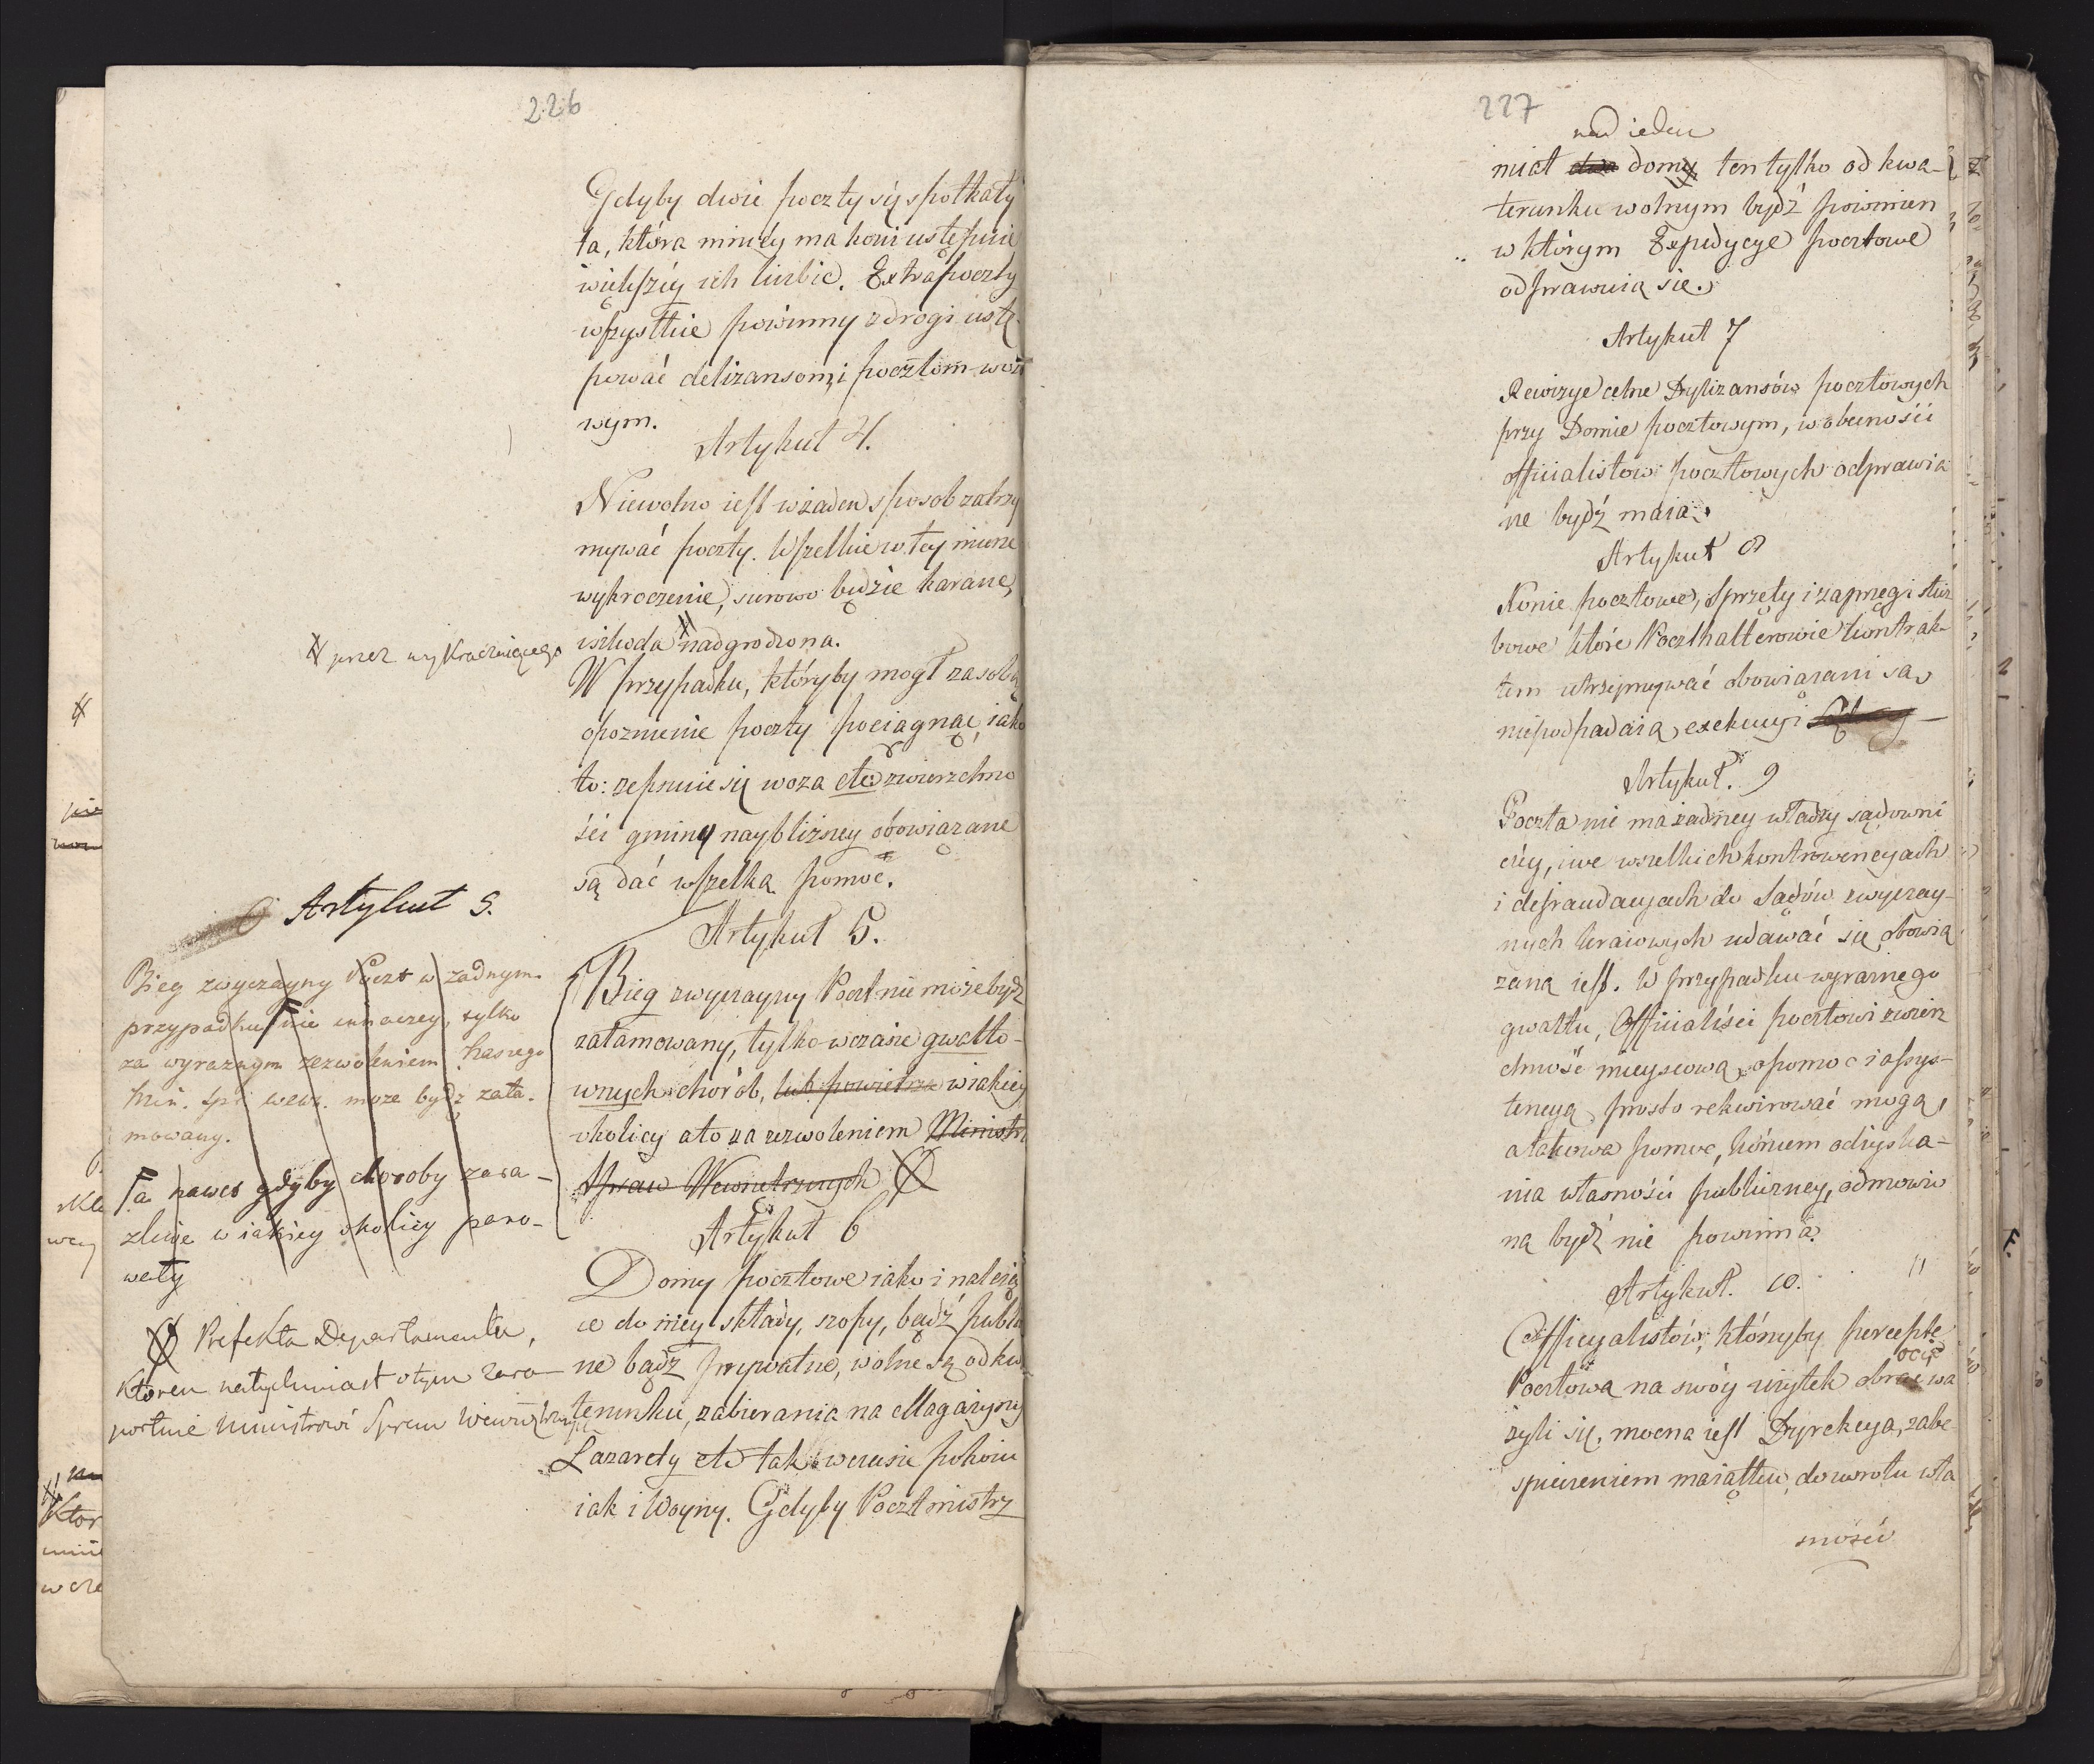 226
Gdyby dwie poczty się spotkały
ta, która mniéy ma koni ustępuie
większéy ich liczbie. Extrapoczty
wszystkie powinny z drogi ustę-
pować delizansom, i pocztom wozo
wym.
Artykuł 4.
Niewolno iest wżaden sposob zatrzy
mywać poczty. Wszelkie w tey mierze
wykroczenie, surowo będzie karane,
i szkoda # nadgrodzona.
# przez wykraczaiącego
W przypadku, któryby mogł za sobą
opoznienie poczty pociągnąć, iako
to: zepsucie się woza etc zwierzchno
ści gminy naybliższey obowiązane
są dać wszelką pomoc.
Artykuł 5.
Bieg zwyczayny Poczt nie może bydź
zatamowany, tylko w czasie gwałto-
wnych chorób, lub powietrza w iakiey
okolicy a to za zezwoleniem Ministra
Spraw Wewnętrznych Ø
Artykuł 5.
Bieg zwyczayny Poczt w żadnym
przypadku F nie inaczey, tylko
za wyraznym zezwoleniem Naszego
Min. Spr. wewn. może bydź zata-
mowany.
F a nawet gdyby choroby zara-
zliwe w iakiey okolicy pano-
wały
Ø Prefekta Departamentu,
ktoren natychmiast o tym zara-
portuie Ministrowi Spraw Wewnętrznych
Artykuł 6
Domy pocztowe iako i należą
ce do niey składy, szopy, bądź publi
ne bądź prywatne, wolne są od kwa
terunku, zabierania na Magazyny
Lazarety etc tak w czasie pokoiu
iak i Woyny. Gdyby Poczt mistrz
227
nad ieden
miał dwa domy, ten tylko od kwa-
terunku wolnym bydź powinien
w którym Expedycye pocztowe
odprawuią się.
Artykuł 7
Rewizye celne Dylizansów pocztowych
przy Domie pocztowym, w obecności
officialistow pocztowych odprawia
ne bydź maią.
Artykuł 8
Konie pocztowe, sprzęty i zaprzęgi służ
bowe które Poczthalterowie kontrak-
tem utrzymywać obowiązani są,
niepodpadaią, exekucyi
Artykuł. 9
Poczta nie ma żadney władzy sądowni
czéy, i we wszelkich kontrowencyach
i defraudacyach do Sądów zwyczay-
nych kraiowych udawać się obowią
zaną iest. W przypadku wyraznego
gwałtu, Officialiści pocztowi zwierz
chność mieyscową, o pomoc i assys-
tencyą prosto rekwirować mogą,
a takowa pomoc, końcem odzyska-
nia własności publiczney, odmowio
ną bydź nie powinna.
Artykuł. 10.
Officyalistów, którzyby perceptę
Pocztową na swóy użytek obracać wa
żyli się, mocna iest Dyrekcya, zabe-
spieczeniem maiątku, do zwrotu wła
sności